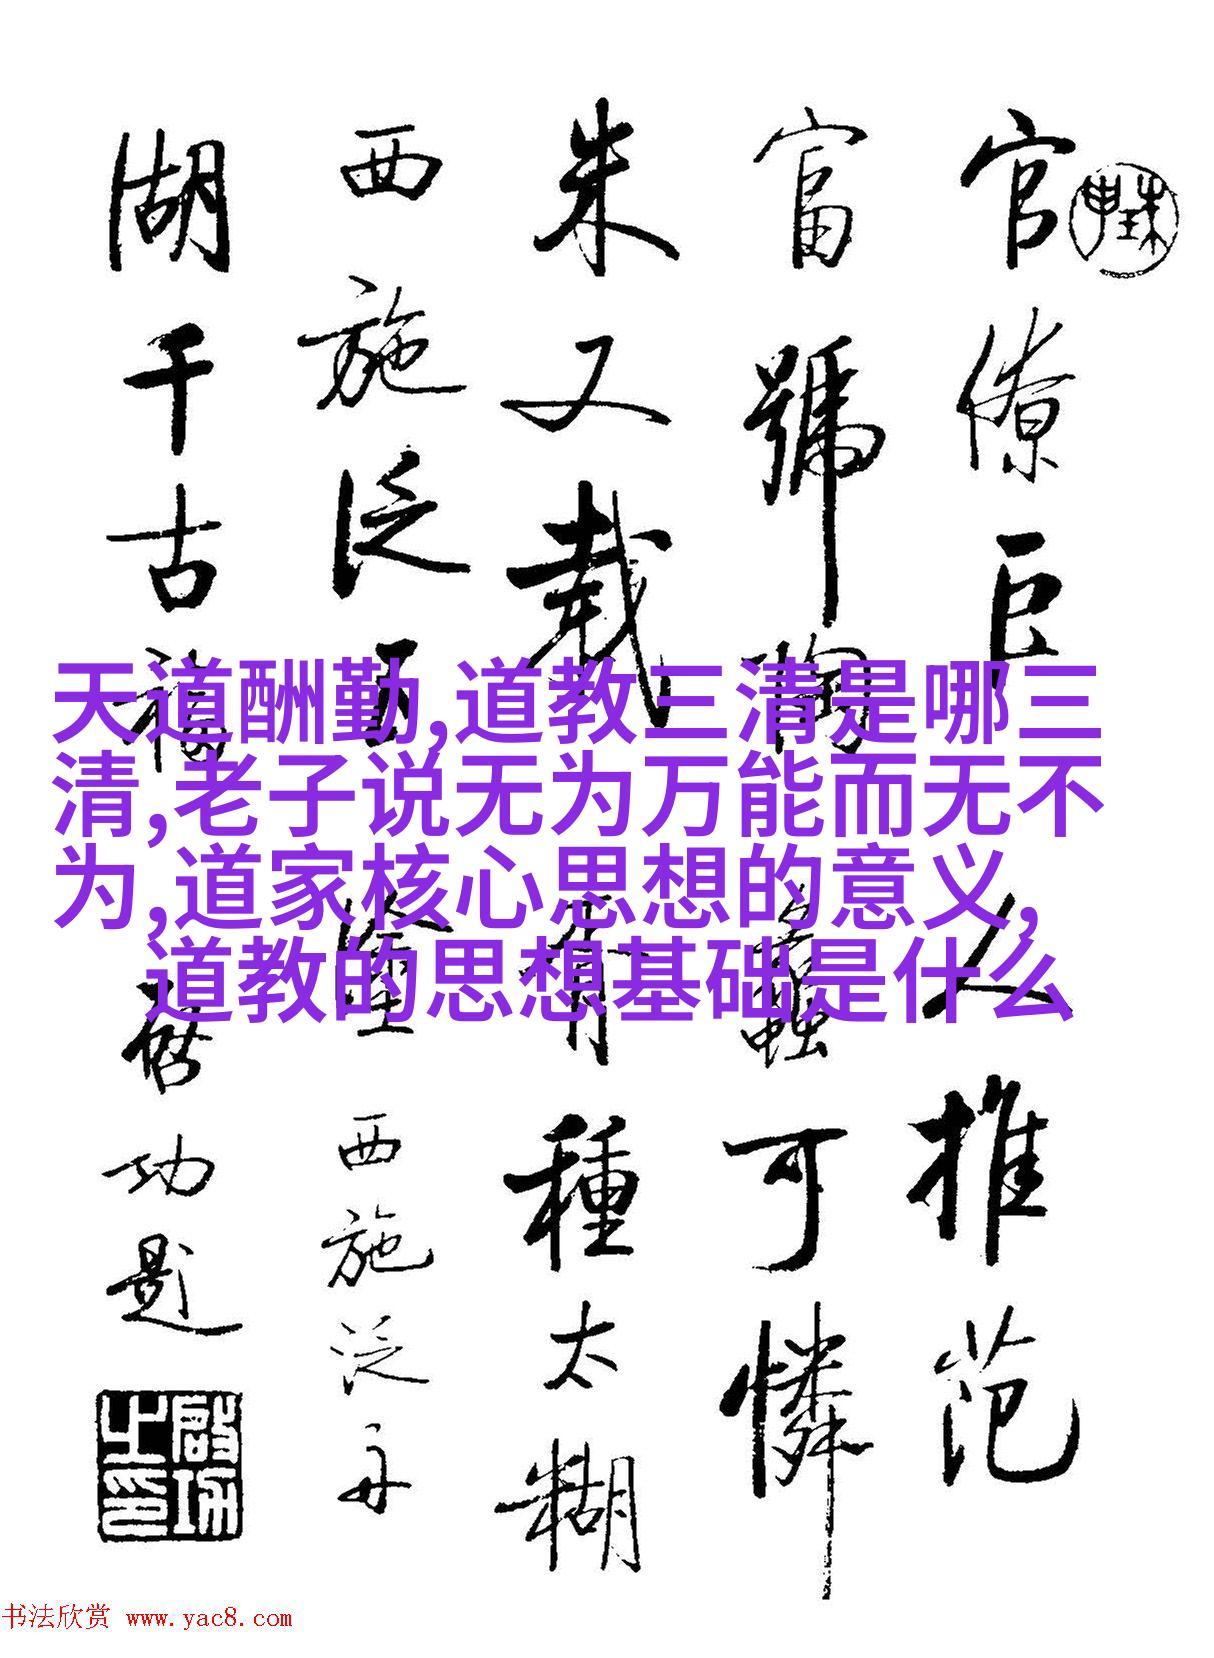 官僚巨人推范
富號陶蠡可憐
朱又栽香種太糊
西施泛西塗
西施泛舟
湖千古
啓功題
啟功之印
天道酬勤,道教三清是哪三
清,老子说无为万能而无不
为,道家核心思想的意义,
道教的思想基础是什么
书法欣赏 www.yac8.com